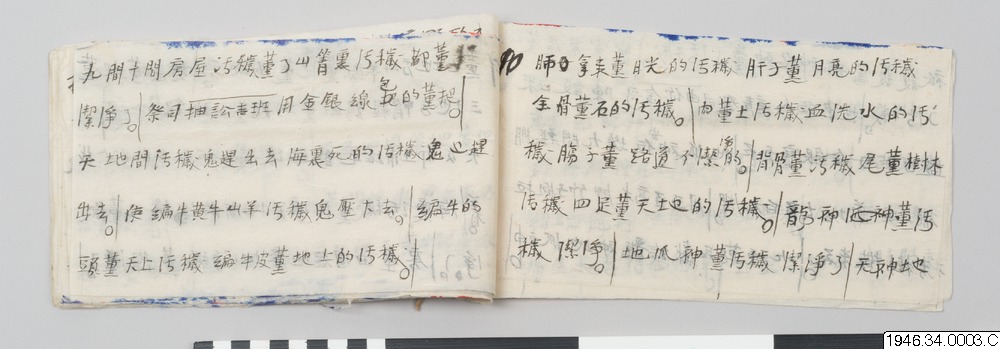 九間十間房屋污穢董了山箐裏污穢都董
潔淨了。祭司抽訟吉班用金銀線包的董棍。
天地間污穢鬼趕出去海裏死的污穢鬼也趕
出去。使編牛黄牛山羊污穢鬼壓下去。編牛的
頭董天上污穢編牛皮董地上的污穢。
90
肺拿來董月光的污穢肝子董月亮的污穢
全骨董石的污穢。肉董土污穢血洗水的污
穢腸子董路道不潔淨的。背骨董污穢尾董樹林
污穢四足董天地的污穢。龍神地神董污
穢潔淨。地瓜神董污穢潔淨了天神地
1946.34.0003.C